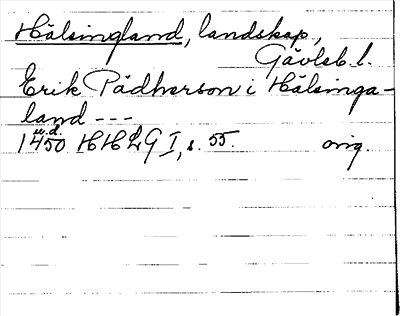 Hälsingland, landskap,
Gävleb. l.
Erik Pädharson i Hälsinga-
land ---
1450 u.d. HHLG I, s. 55. orig.